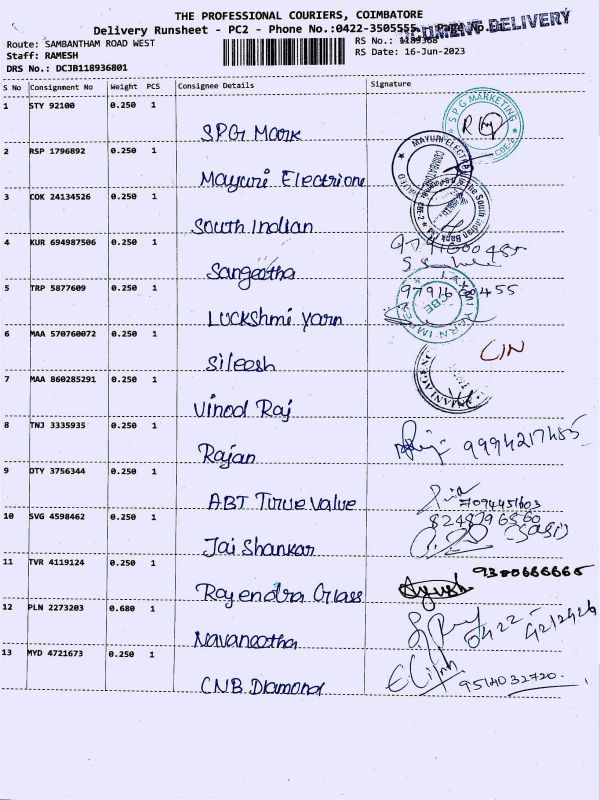 THE PROFESSIONAL COURIERS, COIMBATORE
Delivery Runsheet - PC2 - Phone No.:0422-3505555, Page No.
DOCUMENT DELIVERY
Route: SAMBANTHAM ROAD WEST
Staff: RAMESH
DRS No.: DCJB118936801
RS No.: 1189368
RS Date: 16-Jun-2023
S No Consignment No Weight PCS Consignee Details Signature
1 STY 92100 0.250 1
SPG Mark
SPG MARKETING CBE-2
2 RSP 1796892 0.250 1
Mayuri Electrione
MAYURI ELECT
3 COK 24134526 0.250 1
South Indian
The South Indian Bank Ltd
4 KUR 694987506 0.250 1
Sangeetha
5 TRP 5877609 0.250 1
Luckshmi yarn
LAXMI YARN IMP CBE
6 MAA 570760072 0.250 1
Sileesh
7 MAA 860285291 0.250 1
Vinod Raj
8 TNJ 3335935 0.250 1
Rajan
9 OTY 3756344 0.250 1
ABT Turue value
7094451603
10 SVG 4598462 0.250 1
Jai Shankar
11 TVR 4119124 0.250 1
Rajendra Glass
Ayush
12 PLN 2273203 0.680 1
Navaneetha
0422- 4212426
13 MYD 4721673 0.250 1
CNB Diamond
9514032720